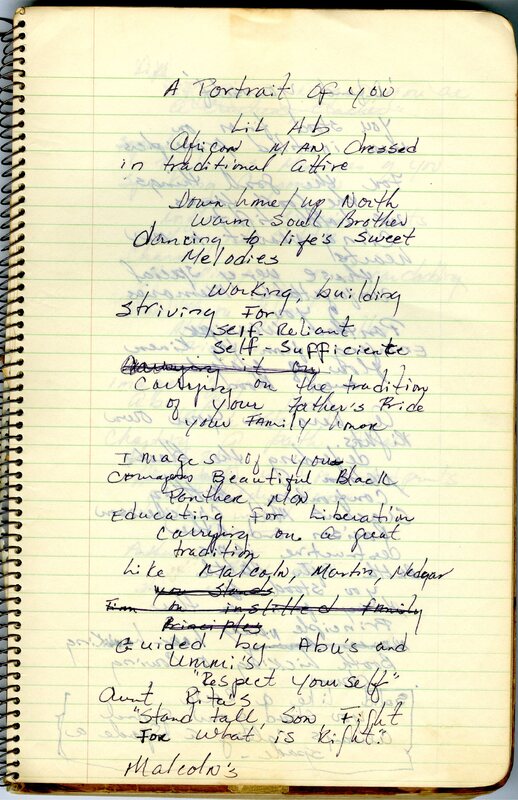 A Portrait of you
Lil Ab
African MAN Dressed
in traditional attire
Down home/up North
Warm Soull Brother
dancing to life's sweet
Melodies
Working, building
Striving For
Self Reliant
Self-Sufficiente
Carrying it on
Carrying on the tradition
of your Father's Pride
your FAMILY honor
Images of you
Beautiful Black
Panther MAN
Educating For Liberation
Carrying on a great
tradition
Like Malcolm, Martin, Medgar
you Stands
Firm on instilled family
Principles
Guided by Abu's and
Ummi's
"Respect Yourself"
Aunt Rita's
"Stand tall, Son, Fight
For what is Right."
Malcolm's